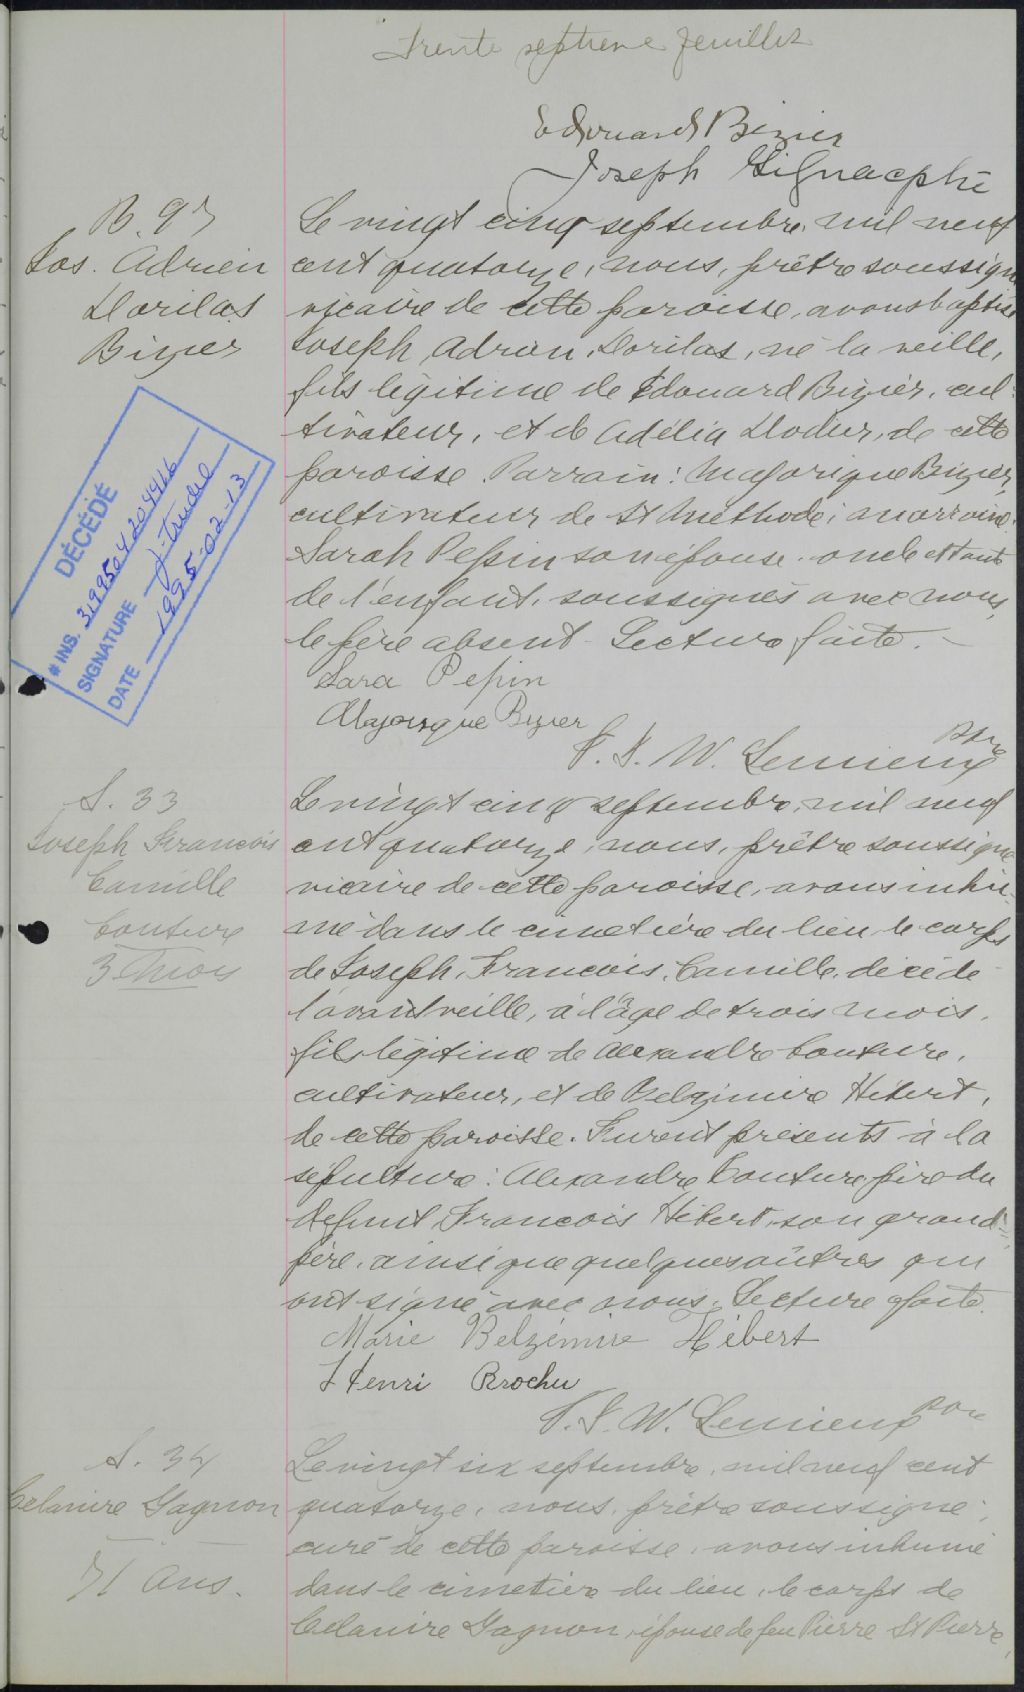 Trente septième feuillet
Edouard Bizier
Joseph Gignac ptre
B. 97
Jos. Adrien
Dorilas
Bizier
Le vingt cinq septembre, mil neuf
cent quatorze, nous, prêtre soussigné
vicaire de cette paroisse, avons baptisé
Joseph, Adrien, Dorilas, né la veille,
fils légitime de Edouard Bizier, cul-
tivateur, et de Adélia Dodier, de cette
paroisse. Parrain: Majorique Bizier,
cultivateur de St Méthode; marraine:
Sarah Pepin son épouse. oncle et tante
de l'enfant, soussignés avec nous,
le père absent. Lecture faite.
Sara Pepin
Majorique Bizier
F. S. W. Lemieux ptre
DÉCÉDÉ
# INS. 3199504204466
SIGNATURE J. Trudel
DATE 1995-02-13
S. 33
Joseph Francois
Camille
Couture
3 mois
Le vingt cinq septembre, mil neuf
cent quatorze, nous, prêtre soussigné
vicaire de cette paroisse, avons inhu-
mé dans le cimetière du lieu, le corps
de Joseph, Francois, Camille, décédé
l'avant veille, à l'âge de trois mois,
fils légitime de Alexandre Couture,
cultivateur, et de Belzimire Hébert,
de cette paroisse. Furent présents à la
sépulture: Alexandre Couture, père du
défunt, Francois Hébert, son grand-
père, ainsi que quelques autres qui
ont signé avec nous. Lecture faite.
Marie Belzémire Hébert
Henri Brochu
F. S. W. Lemieux ptre
S. 34
Celanire Gagnon
71 ans.
Le vingt six septembre, mil neuf cent
quatorze, nous, prêtre soussigné,
curé de cette paroisse, avons inhumé
dans le cimetière du lieu, le corps de
Celanire Gagnon, épouse de feu Pierre St Pierre,